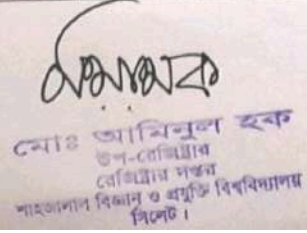 মোঃ আমিনুল হক
উপ-রেজিস্ট্রার
রেজিস্ট্রার দপ্তর
শাহজালাল বিজ্ঞান ও প্রযুক্তি বিশ্ববিদ্যালয়
সিলেট।